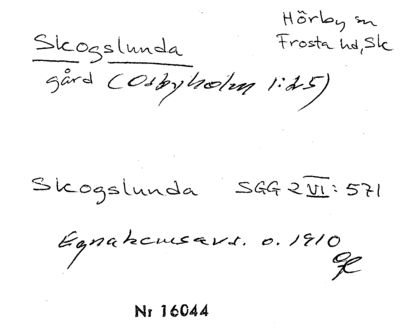 Hörby sn
Frosta hd, Sk
Skogslunda
gård (Osbyholm 1:25)
Skogslunda SGG 2 VI: 571
Egnahemsavs. o. 1910
Nr 16044